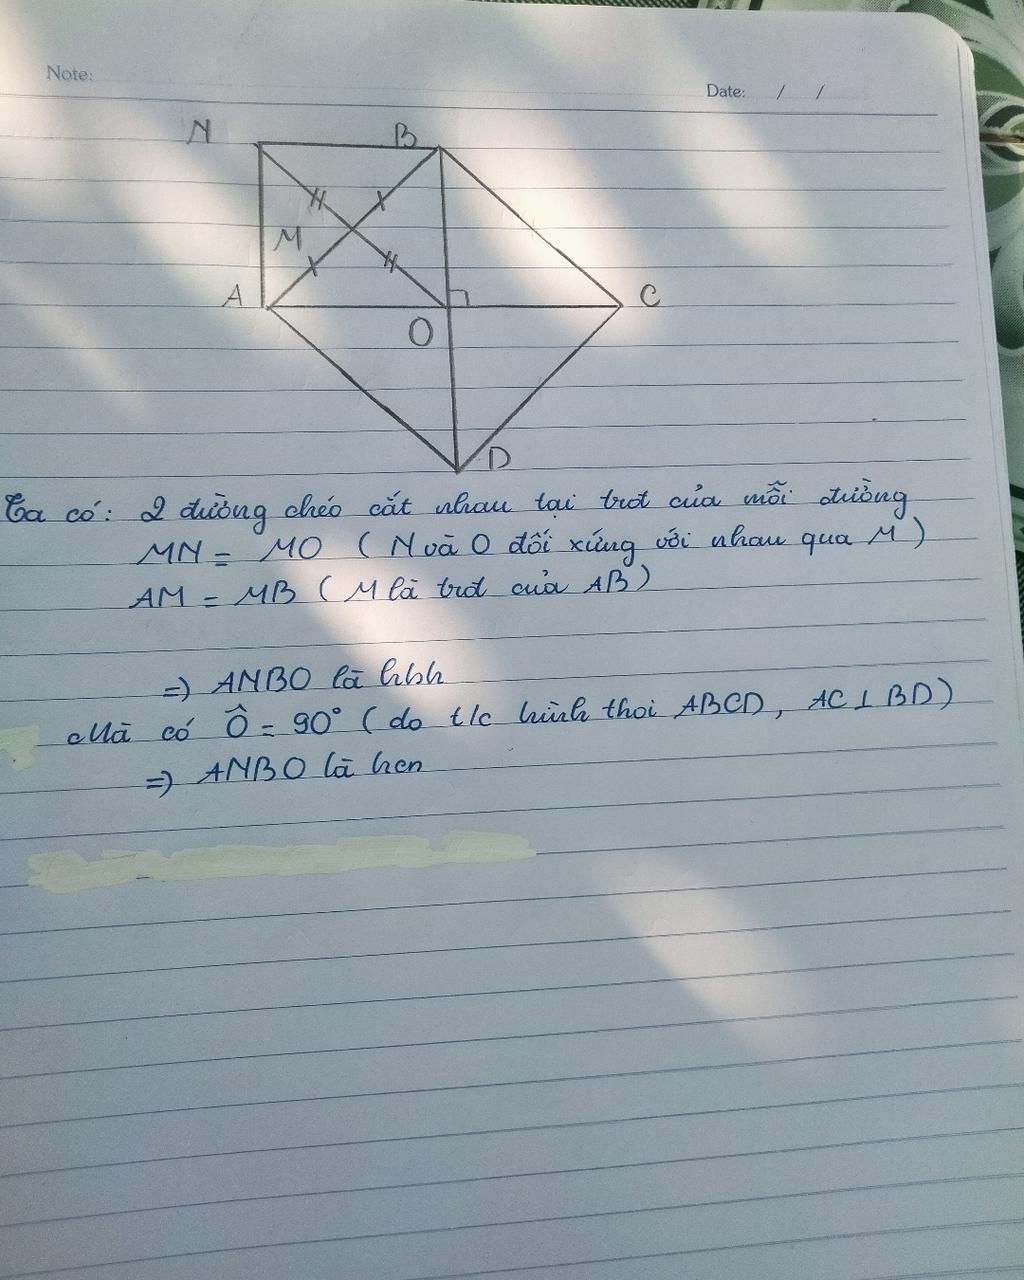 Note:
Date: / /
N
B
M
A
C
O
D
Ta có: 2 đường chéo cắt nhau tại trđ của mỗi đường
MN = MO ( N và O đối xứng với nhau qua M )
AM = MB ( M là trđ của AB )
=) ANBO là hbh
Mà có Ô = 90° ( do t/c hình thoi ABCD, AC ⊥ BD )
=) ANBO là hcn